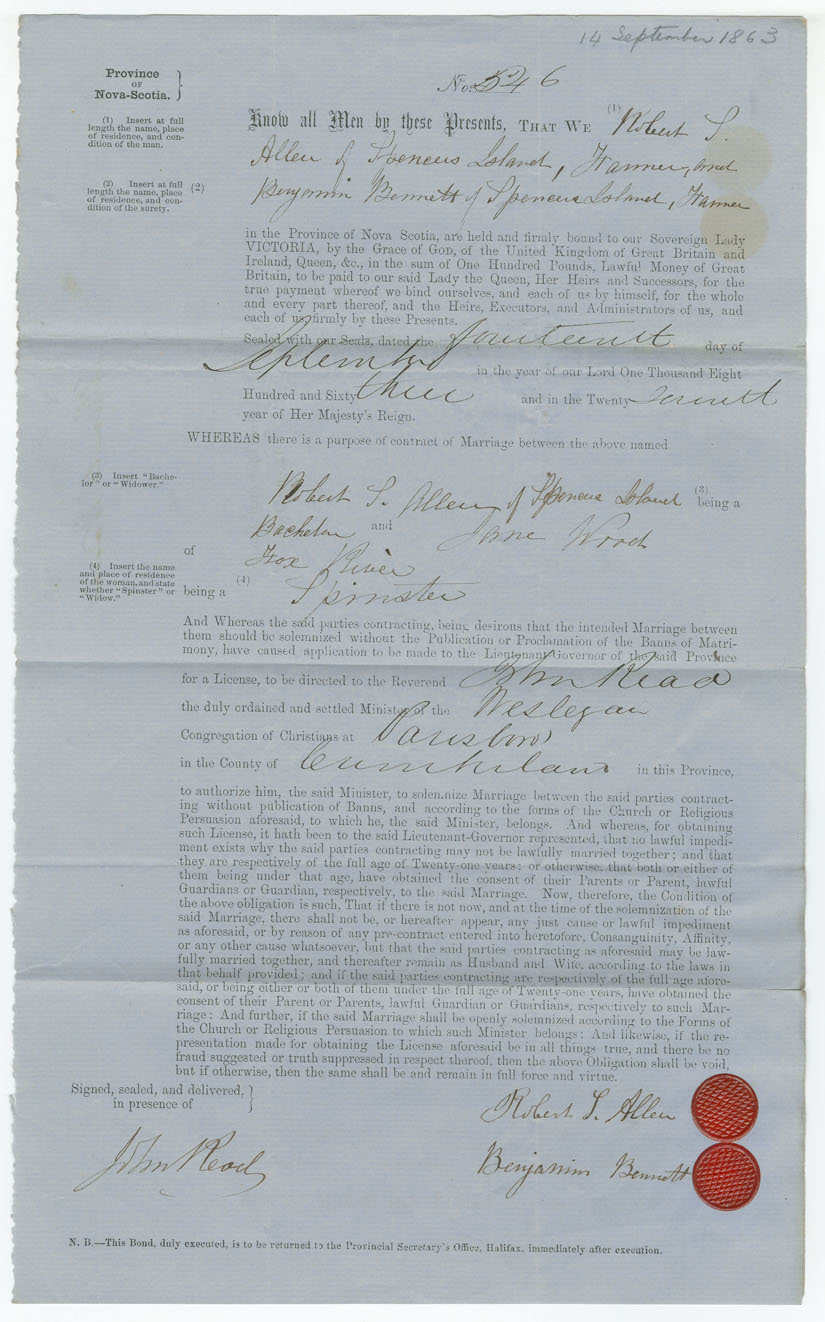 14 September 1863
Province
OF
Nova-Scotia.
No. 546
(1) Insert at full
length the name, place
of residence, and con-
dition of the man.
Know all Men by these Presents, THAT WE (1) Robert S.
Allen of Spencers Island, Farmer, and
(2) Insert at full
length the name, place
of residence, and con-
dition of the surety.
(2) Benjamin Bennett of Spencers Island, Farmer
in the Province of Nova Scotia, are held and firmly bound to our Sovereign Lady
VICTORIA, by the Grace of GOD, of the United Kingdom of Great Britain and
Ireland, Queen, &c., in the sum of One Hundred Pounds, Lawful Money of Great
Britain, to be paid to our said Lady the Queen, Her Heirs and Successors, for the
true payment whereof we bind ourselves, and each of us by himself, for the whole
and every part thereof, and the Heirs, Executors, and Administrators of us, and
each of us firmly by these Presents.
Sealed with our Seals, dated the fourteenth day of
September in the year of our Lord One Thousand Eight
Hundred and Sixty three and in the Twenty seventh
year of Her Majesty's Reign.
WHEREAS there is a purpose of contract of Marriage between the above named
(3) Insert "Bache-
lor" or "Widower."
Robert S. Allen of Spencers Island (3) being a
Bachelor and Jane Wood
of Fox River
(4) Insert the name
and place of residence
of the woman, and state
whether "Spinster" or
"Widow."
being a (4) Spinster
And Whereas the said parties contracting, being desirous that the intended Marriage between
them should be solemnized without the Publication or Proclamation of the Banns of Matri-
mony, have caused application to be made to the Lieutenant-Governor of the said Province
for a License, to be directed to the Reverend John Read
the duly ordained and settled Minister of the Weslegan
Congregation of Christians at Parrsboro
in the County of Cumberland in this Province,
to authorize him, the said Minister, to solemnize Marriage between the said parties contract-
ing without publication of Banns, and according to the forms of the Church or Religious
Persuasion aforesaid, to which he, the said Minister, belongs. And whereas, for obtaining
such License, it hath been to the said Lieutenant-Governor represented, that no lawful impedi-
ment exists why the said parties contracting may not be lawfully married together; and that
they are respectively of the full age of Twenty-one years: or otherwise, that both or either of
them being under that age, have obtained the consent of their Parents or Parent, lawful
Guardians or Guardian, respectively, to the said Marriage. Now, therefore, the Condition of
the above obligation is such, That if there is not now, and at the time of the solemnization of the
said Marriage, there shall not be, or hereafter appear, any just cause or lawful impediment
as aforesaid, or by reason of any pre-contract entered into heretofore, Consanguinity, Affinity,
or any other cause whatsoever, but that the said parties contracting as aforesaid may be law-
fully married together, and thereafter remain as Husband and Wife, according to the laws in
that behalf provided; and if the said parties contracting are respectively of the full age afore-
said, or being either or both of them under the full age of Twenty-one years, have obtained the
consent of their Parent or Parents, lawful Guardian or Guardians, respectively to such Mar-
riage: And further, if the said Marriage shall be openly solemnized according to the Forms of
the Church or Religious Persuasion to which such Minister belongs: And likewise, if the re-
presentation made for obtaining the License aforesaid be in all things true, and there be no
fraud suggested or truth suppressed in respect thereof, then the above Obligation shall be void,
but if otherwise, then the same shall be and remain in full force and virtue.
Signed, sealed, and delivered,
in presence of
Robert S. Allen
John Read
Benjamin Bennett
N. B.—This Bond, duly executed, is to be returned to the Provincial Secretary's Office, Halifax, immediately after execution.